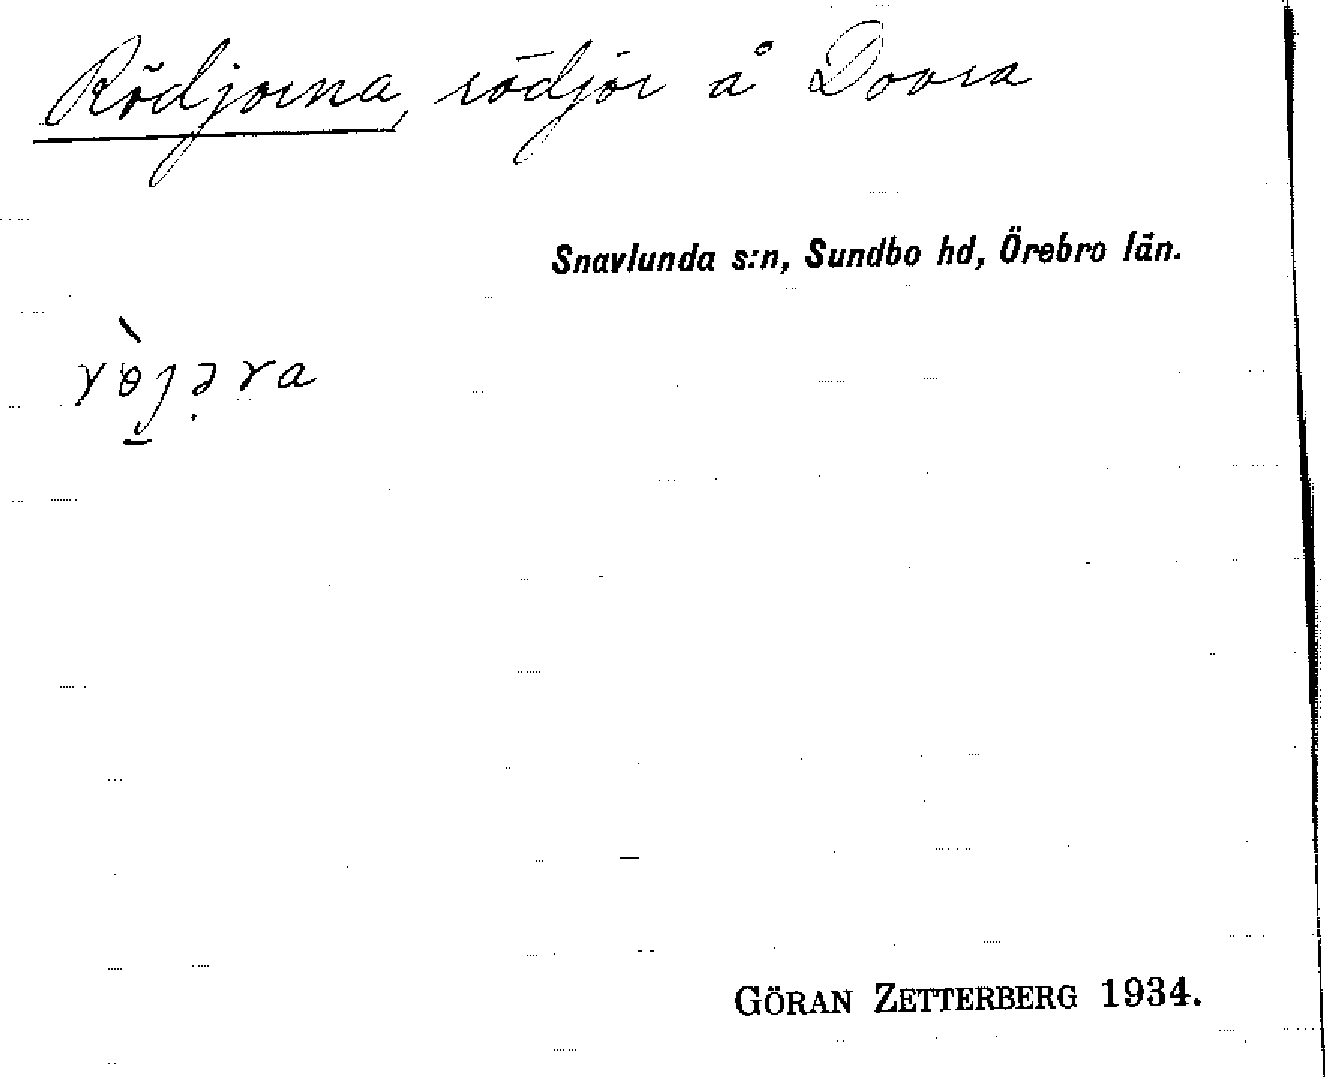 Rödjorna, rödjor å Dovra
Snavlunda s:n, Sundbo hd, Örebro län.
GÖRAN ZETTERBERG 1934.